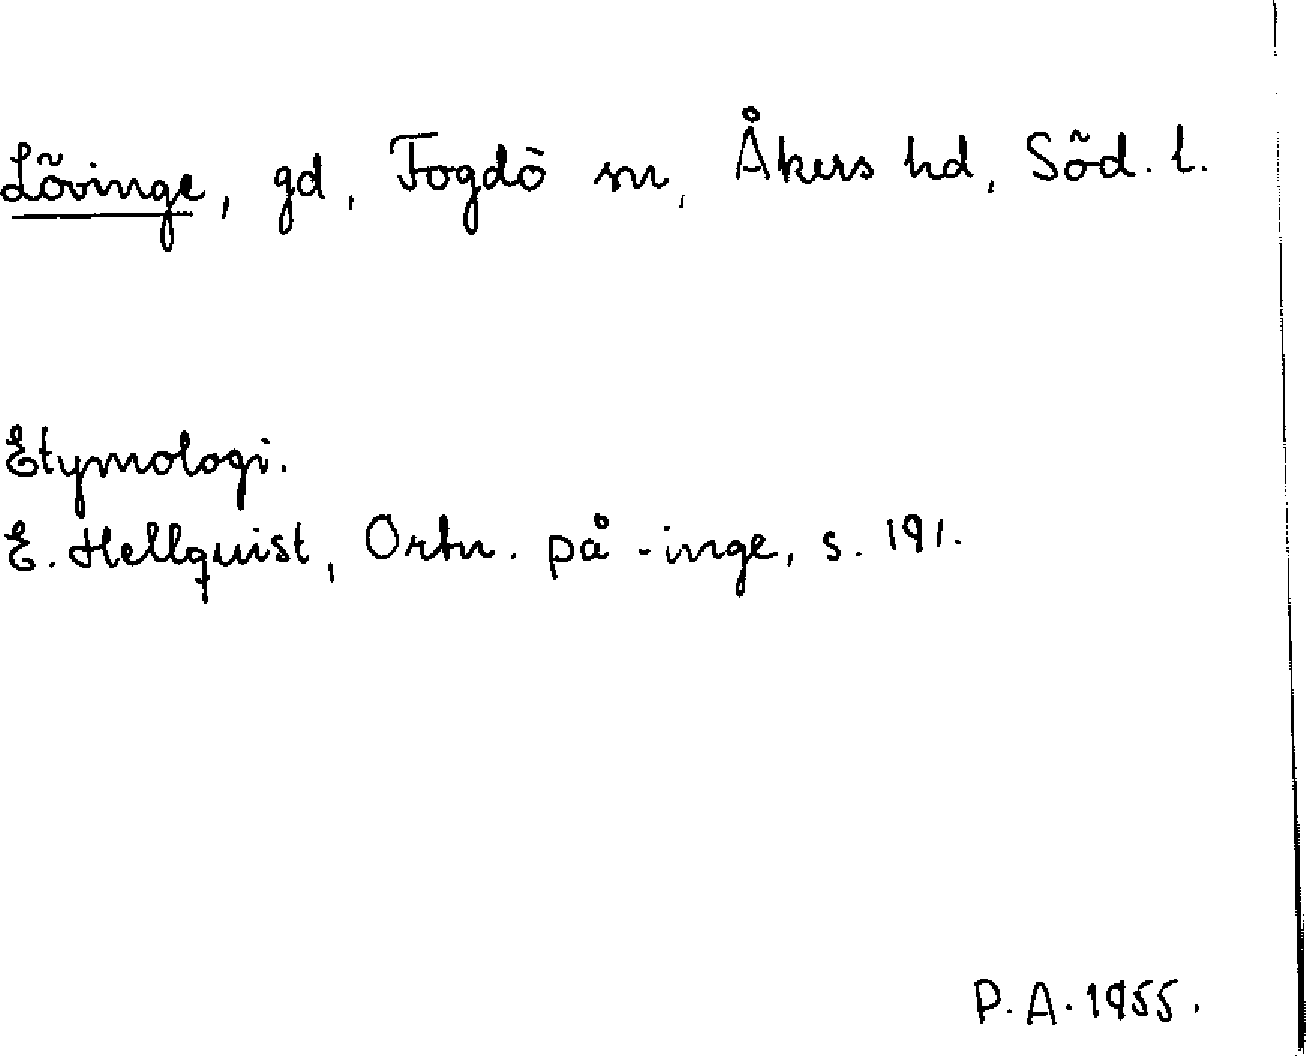 Lövinge, gd, Fogdö sn, Åkers hd, Söd. l.
Etymologi.
E. Hellquist, Ortn. på -inge, s. 191.
P.A. 1955.